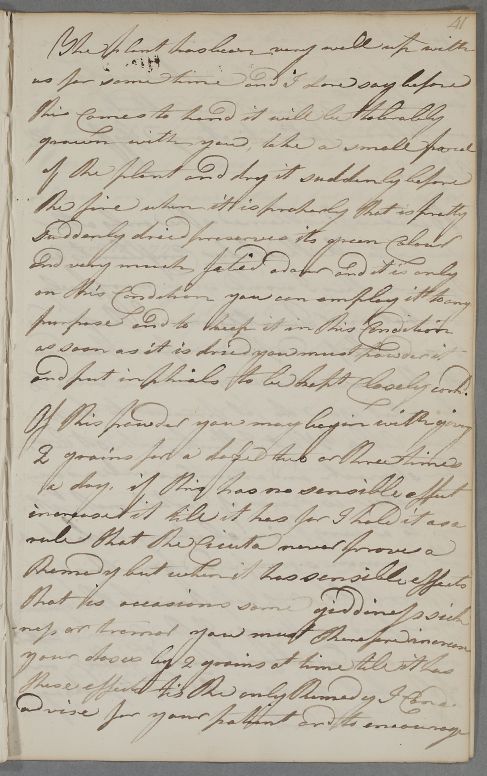 41
The plant has been very well up with
us for some time and I dare say before
this comes to hand it will be tolerably
grown with you, take a small parcel
of the plant and dry it suddenly before
the fire when it is properly that is pretty
suddenly dried preserves its green Colour
and very much fœtid odour and it is only
in this Condition you can employ it to any
purpose and to keep it in this Condition
as soon as it is dried you must powder it
and put in phials to be kept closely cork'd
Of this powder you may begin with giving
2 grains for a dose two or three times
a day, if this has no sensible effect
increase it till it has for I hold it as a
rule that the Cicuta never proves a
Remedy but when it has sensible effects
that is occasions some giddiness sick
ness or tremor you must therefore increase
your doses by 2 grains at time till it has
these effects tis the only Remedy I can
advise for your patient and to encourage